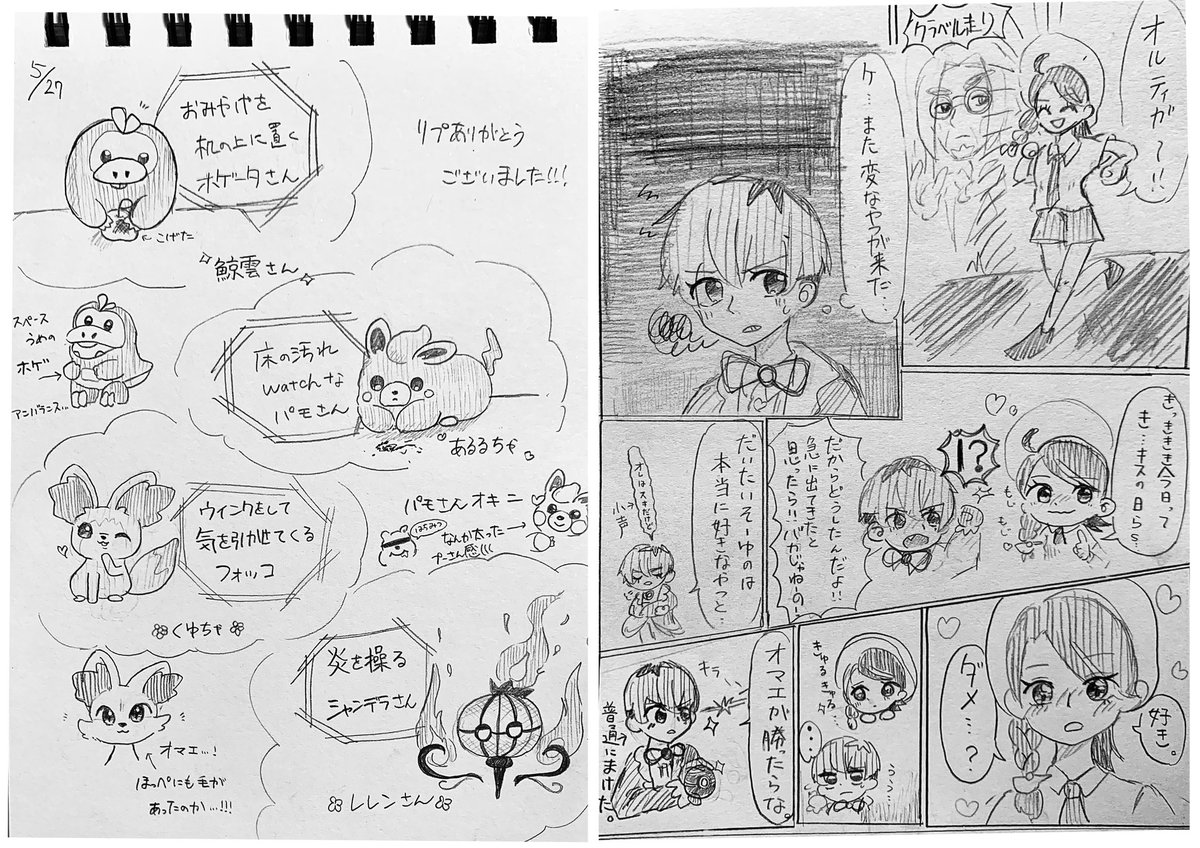 5/27
おみやげを
机の上に置く
ホゲータさん
リプありがとう
ございました!!!
←こげた
鯨雲さん
スペース
うめの
ホゲ→
アンバランス…
床の汚れ
watchな
パモさん
あるるちゃ
ウィンクをして
気を引かせてくる
フォッコ
くゆちゃ
パモさんオキニ
はちみつ
なんか太った→
プーさん感!!!
炎を操る
シャンデラさん
レレンさん
オマエ…!
ほっぺにも毛が
あったのか…!!!
クラベル走り
オルティガ〜!!
ケ…また変なやつが来た…
きっききき今日って
き…キスの日らら…
もじ
もじ
!?
だからどうしたんだよ!!
急に出てきたと
思ったら!!バカじゃねーの!
だいたいそーゆのは
本当に好きなやつと…
オレはスキだけど
小声
好き。
ダメ…?
きゅるきゅる…
…
オマエが勝ったらな。
キラ
普通にまけた。